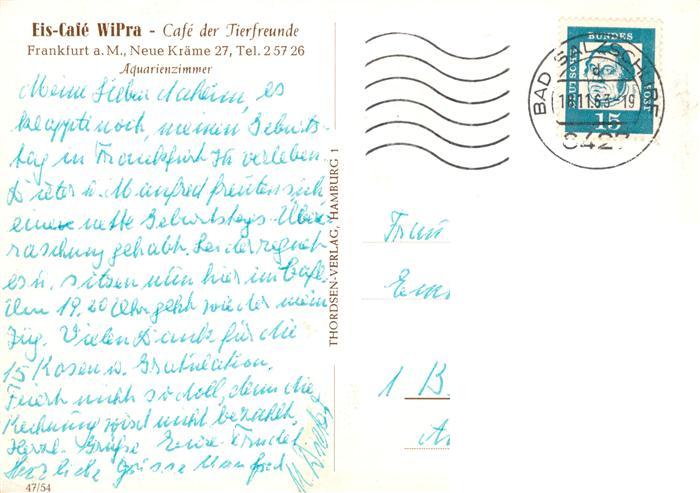 Eis-Café WiPra - Café der Tierfreunde
Frankfurt a. M., Neue Kräme 27, Tel. 2 57 26
Aquarienzimmer
Meine Lieben daheim, es
klappte noch, meinen Geburts-
tag in Frankfurt zu verleben.
Dieter u. Manfred freuten sich,
eine nette Geburtstags-Über-
raschung gehabt. Leider regnet
es u. sitzen nun hier im Café.
Um 19.20 Uhr geht wieder mein
Zug. Vielen Dank für die
15 Rosen u. Gratulation.
Feiert nicht so doll, denn die
Rechnung wird nicht bezahlt
Herzl. Grüße Eure Trudel
Herzliche Grüsse Manfred
47/54
THORDSEN-VERLAG, HAMBURG 1
DEUTSCHE BUNDESPOST
15
BAD SALZSCHLIRF
d
18.11.63-19
6427
Frau
1 B